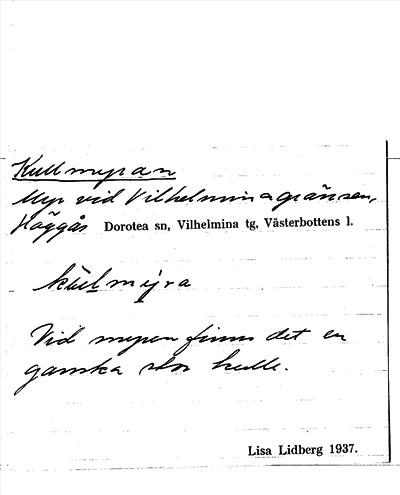 Kullmyran
Myr vid Vilhelminagränsen,
Häggås Dorotea sn, Vilhelmina tg, Västerbottens l.
kùlmýra
Vid myren finns det en
ganska stor kulle.
Lisa Lidberg 1937.